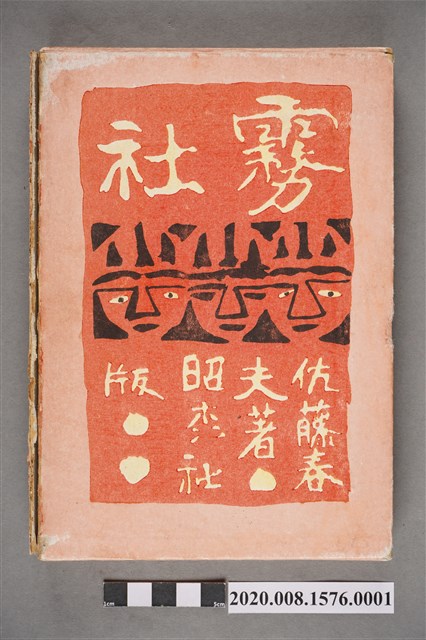 霧社
佐藤春
夫著
昭森社
版
1cm
5cm
2020.008.1576.0001